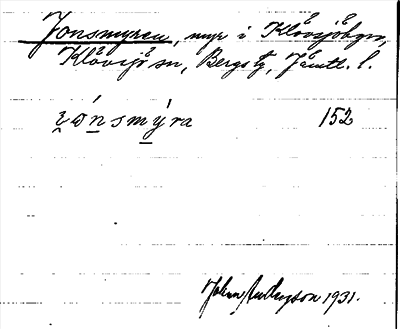 Jonsmyren, myr i Klövsjöbyn,
Klövsjö sn, Bergs tg, Jämtl. l.
ɩ̯ónsmýra 152
Johan Anderson 1931.